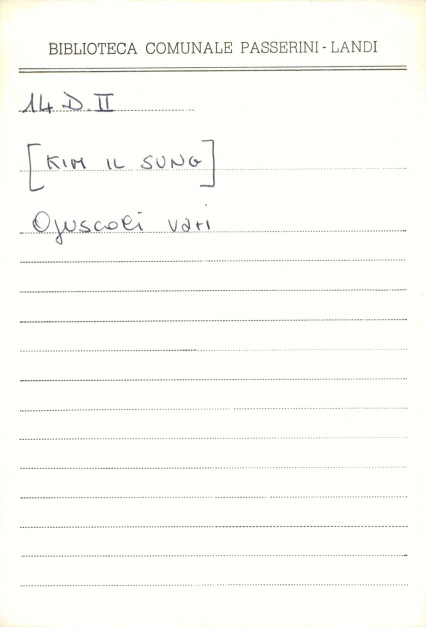 BIBLIOTECA COMUNALE PASSERINI-LANDI
14 D II
[KIM IL SUNG]
Opuscoli vari